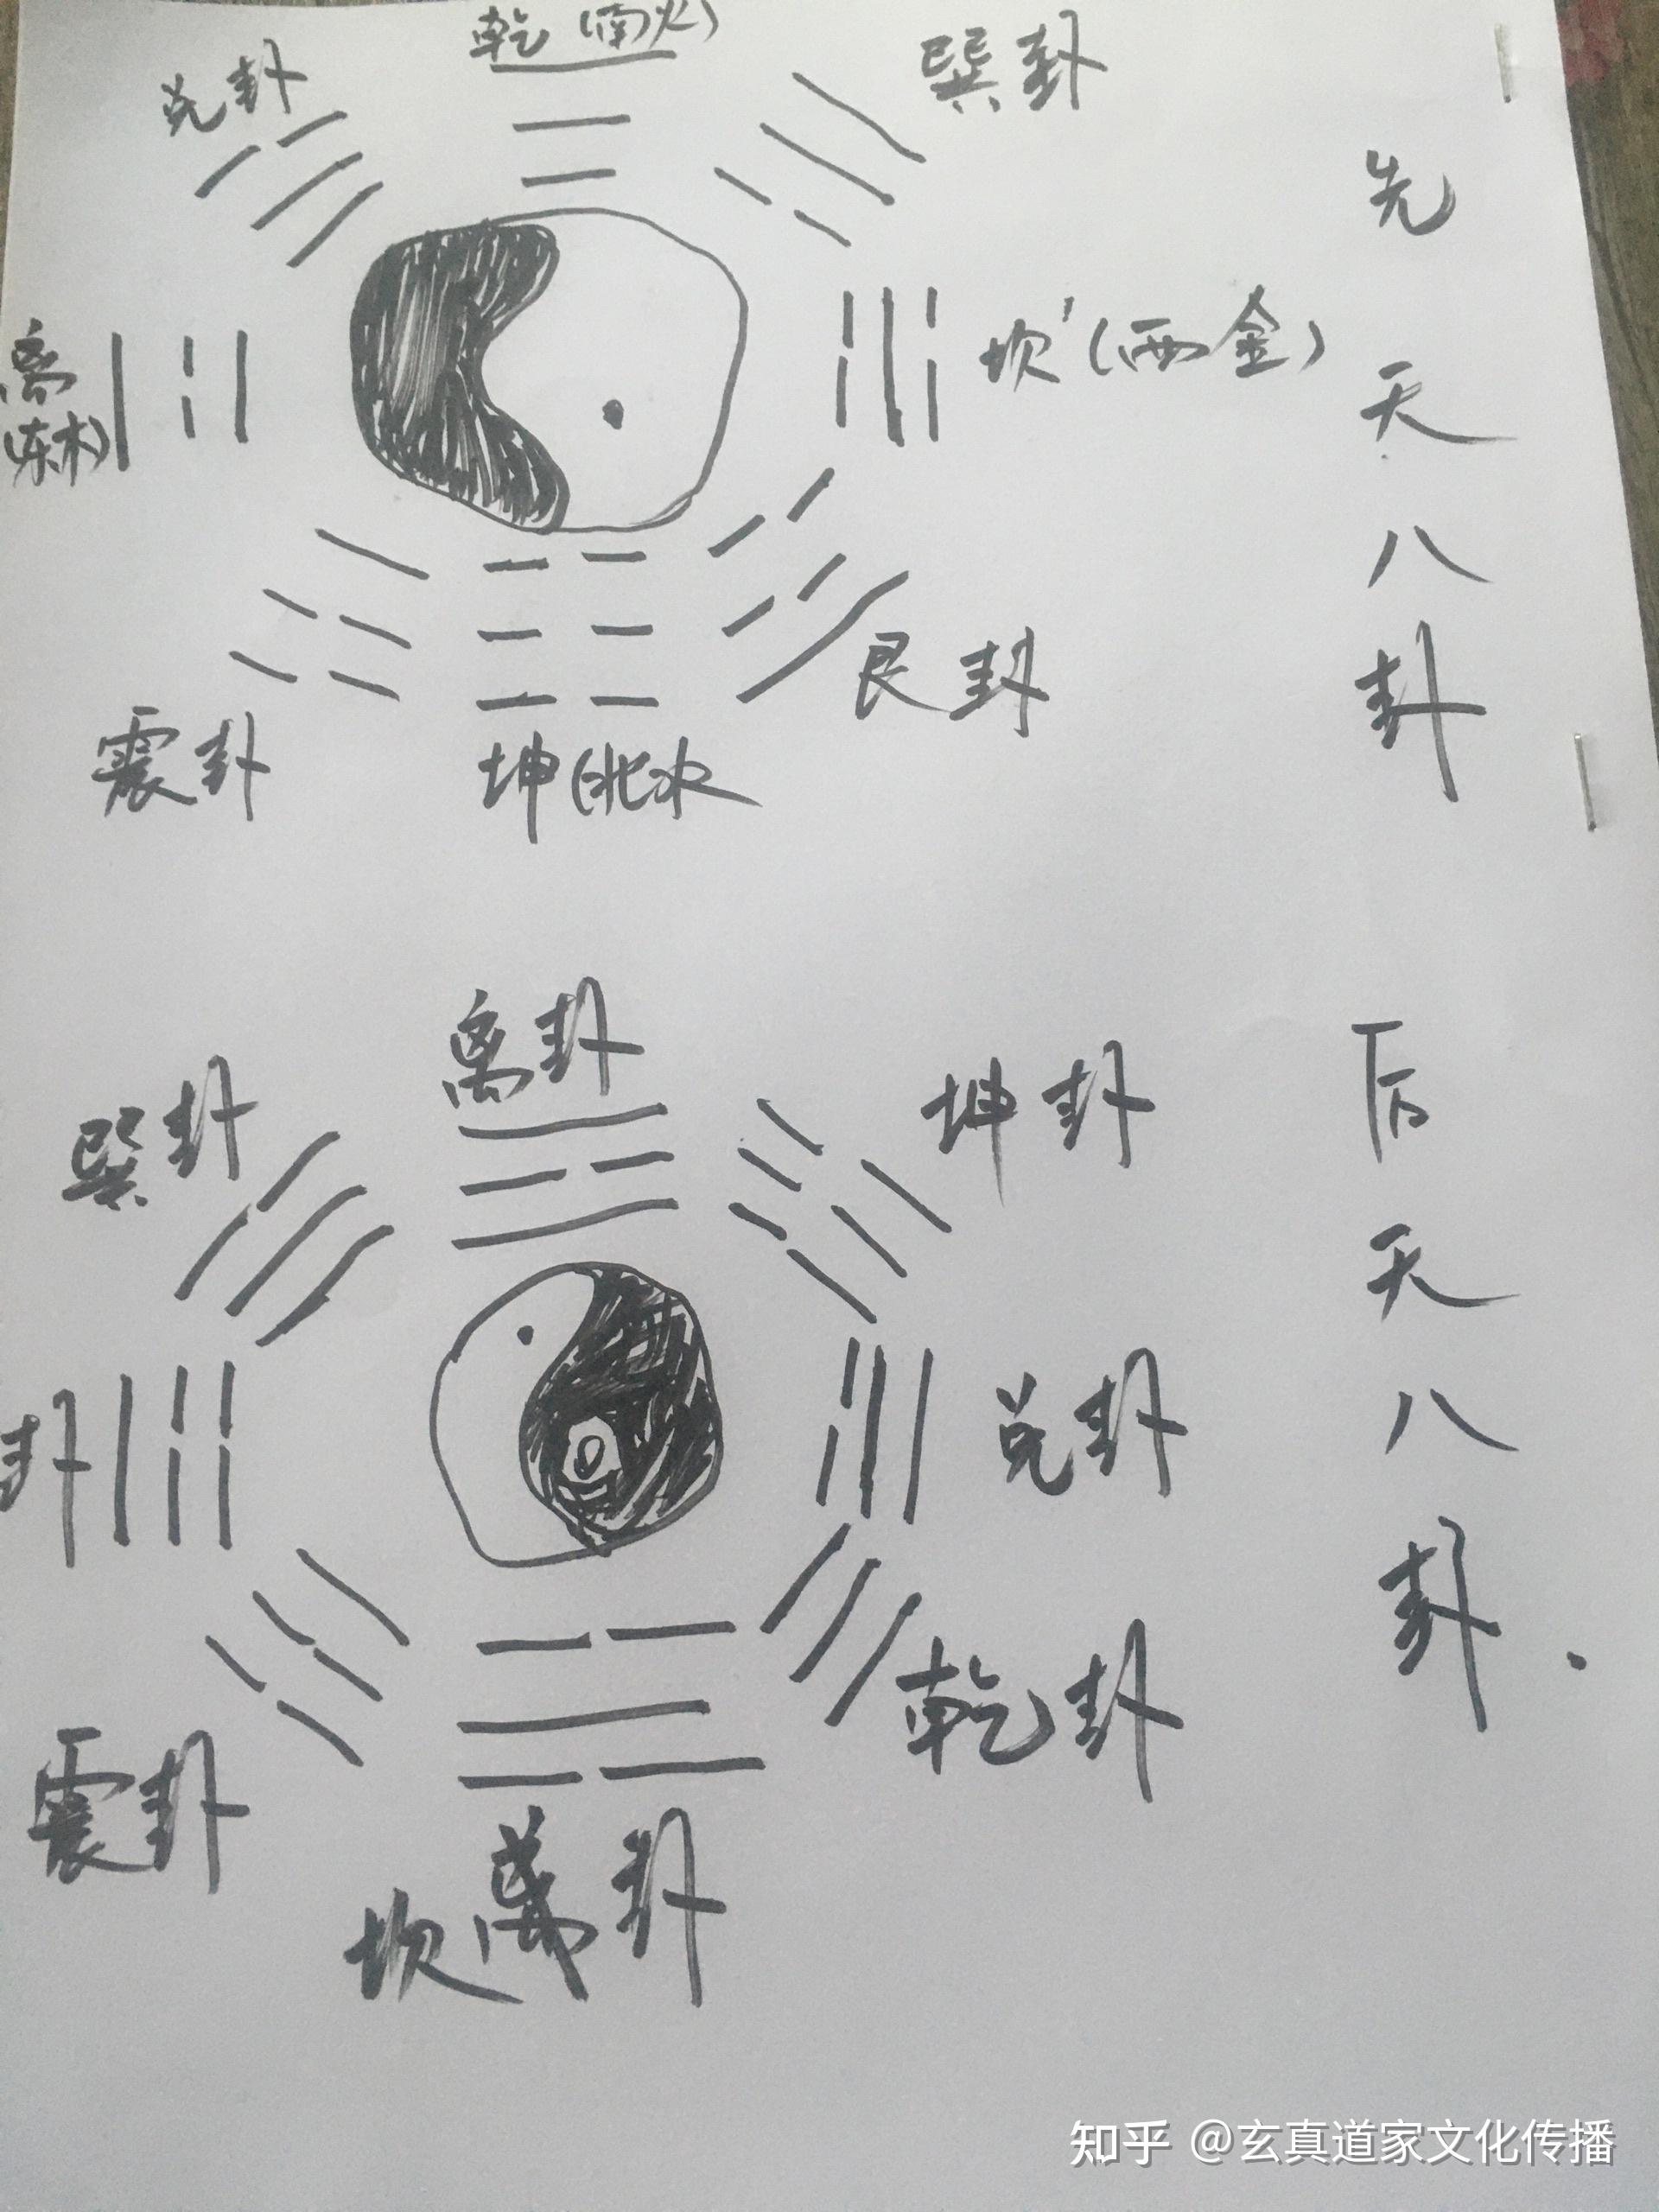 乾(南火)
兑卦
巽卦
离
(东木)
坎(西金)
震卦
坤(北水
艮卦
先天八卦
离卦
巽卦
坤卦
卦
兑卦
震卦
乾卦
坎
卦
后天八卦.
知乎 @玄真道家文化传播